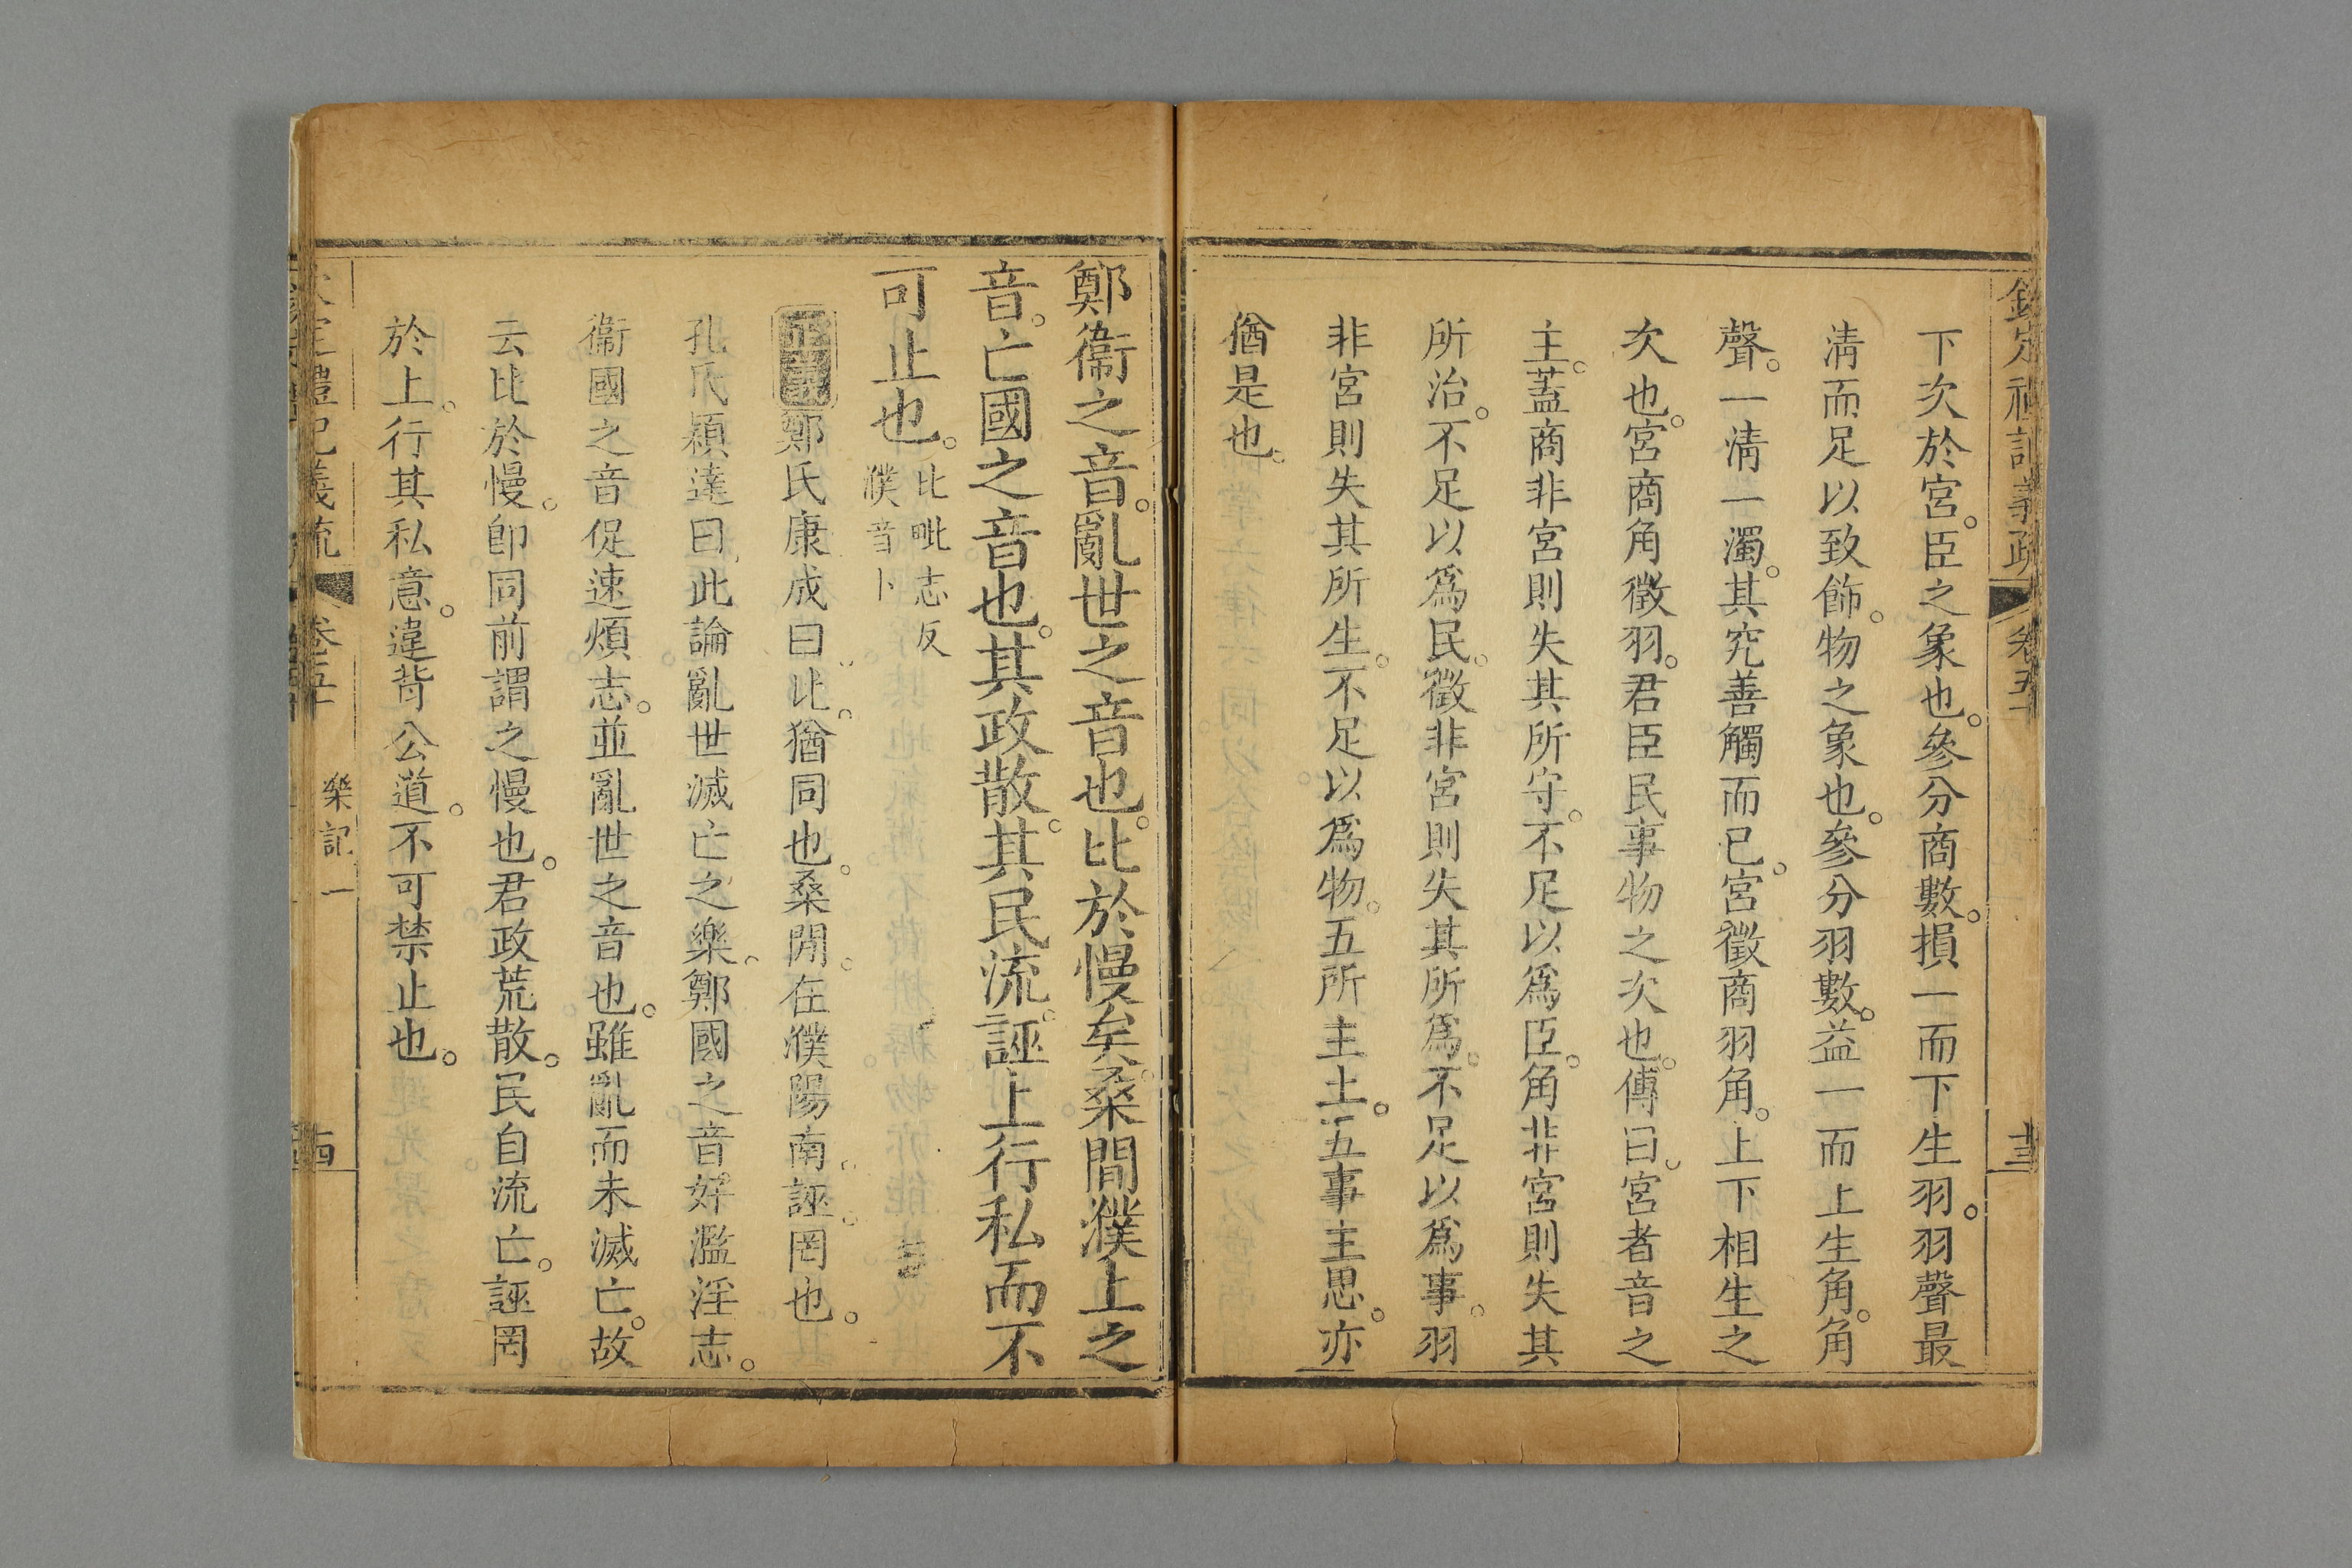 欽定禮記義疏 卷五十
下次於宮。臣之象也。參分商數。損一而下生羽。羽聲最
清而足以致飾。物之象也。參分羽數。益一而上生角。角
聲。一清一濁。其究善觸而已。宮徵商羽角。上下相生之
次也。宮商角徵羽。君臣民事物之次也。傳曰。宮者音之
主。蓋商非宮則失其所守。不足以爲臣。角非宮則失其
所治。不足以爲民。徵非宮則失其所爲。不足以爲事。羽
非宮則失其所生。不足以爲物。五所主土。五事主思。亦
猶是也。
鄭衞之音。亂世之音也。比於慢矣。桑間濮上之
音。亡國之音也。其政散。其民流。誣上行私而不
可止也。比毗志反
濮音卜
正義鄭氏康成曰。比。猶同也。桑閒。在濮陽南。誣。罔也。
孔氏穎達曰。此論亂世滅亡之樂。鄭國之音。好濫淫志。
衞國之音促速煩志。並亂世之音也。雖亂而未滅亡。故
云比於慢。卽同前謂之慢也。君政荒散。民自流亡。誣罔
於上。行其私意。違背公道。不可禁止也。
定禮記義疏 卷五十 樂記一